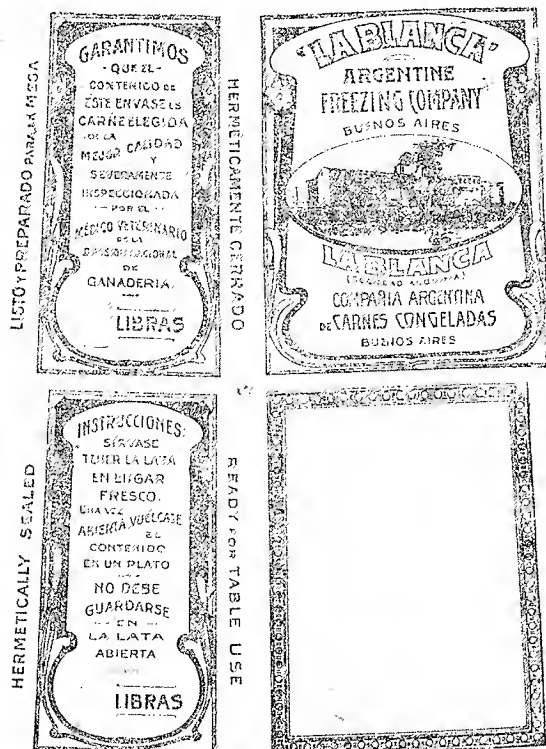 LISTO Y PREPARADO PARA LA MESA
GARANTIMOS
- QUE EL -
CONTENIDO DE
ESTE ENVASE ES
CARNE ELEGIDA
DE LA
MEJOR CALIDAD
Y
SEVERAMENTE
INSPECCIONADA
- POR EL -
MÉDICO VETERINARIO
DE LA
NACIONAL
DE
GANADERIA.
LIBRAS
HERMÉTICAMENTE CERRADO
"LA BLANCA"
ARGENTINE
FREEZING COMPANY
BUENOS AIRES
LA BLANCA
(SOCIEDAD ANONIMA)
COMPAÑIA ARGENTINA
DE CARNES CONGELADAS
BUENOS AIRES
HERMETICALLY SEALED
INSTRUCCIONES:
SÍRVASE
TENER LA LATA
EN LUGAR
FRESCO.
UNA VEZ
ABIERTA, VUÉLCASE
EL
CONTENIDO
EN UN PLATO
NO DEBE
GUARDARSE
- EN -
LA LATA
ABIERTA
LIBRAS
READY FOR TABLE USE